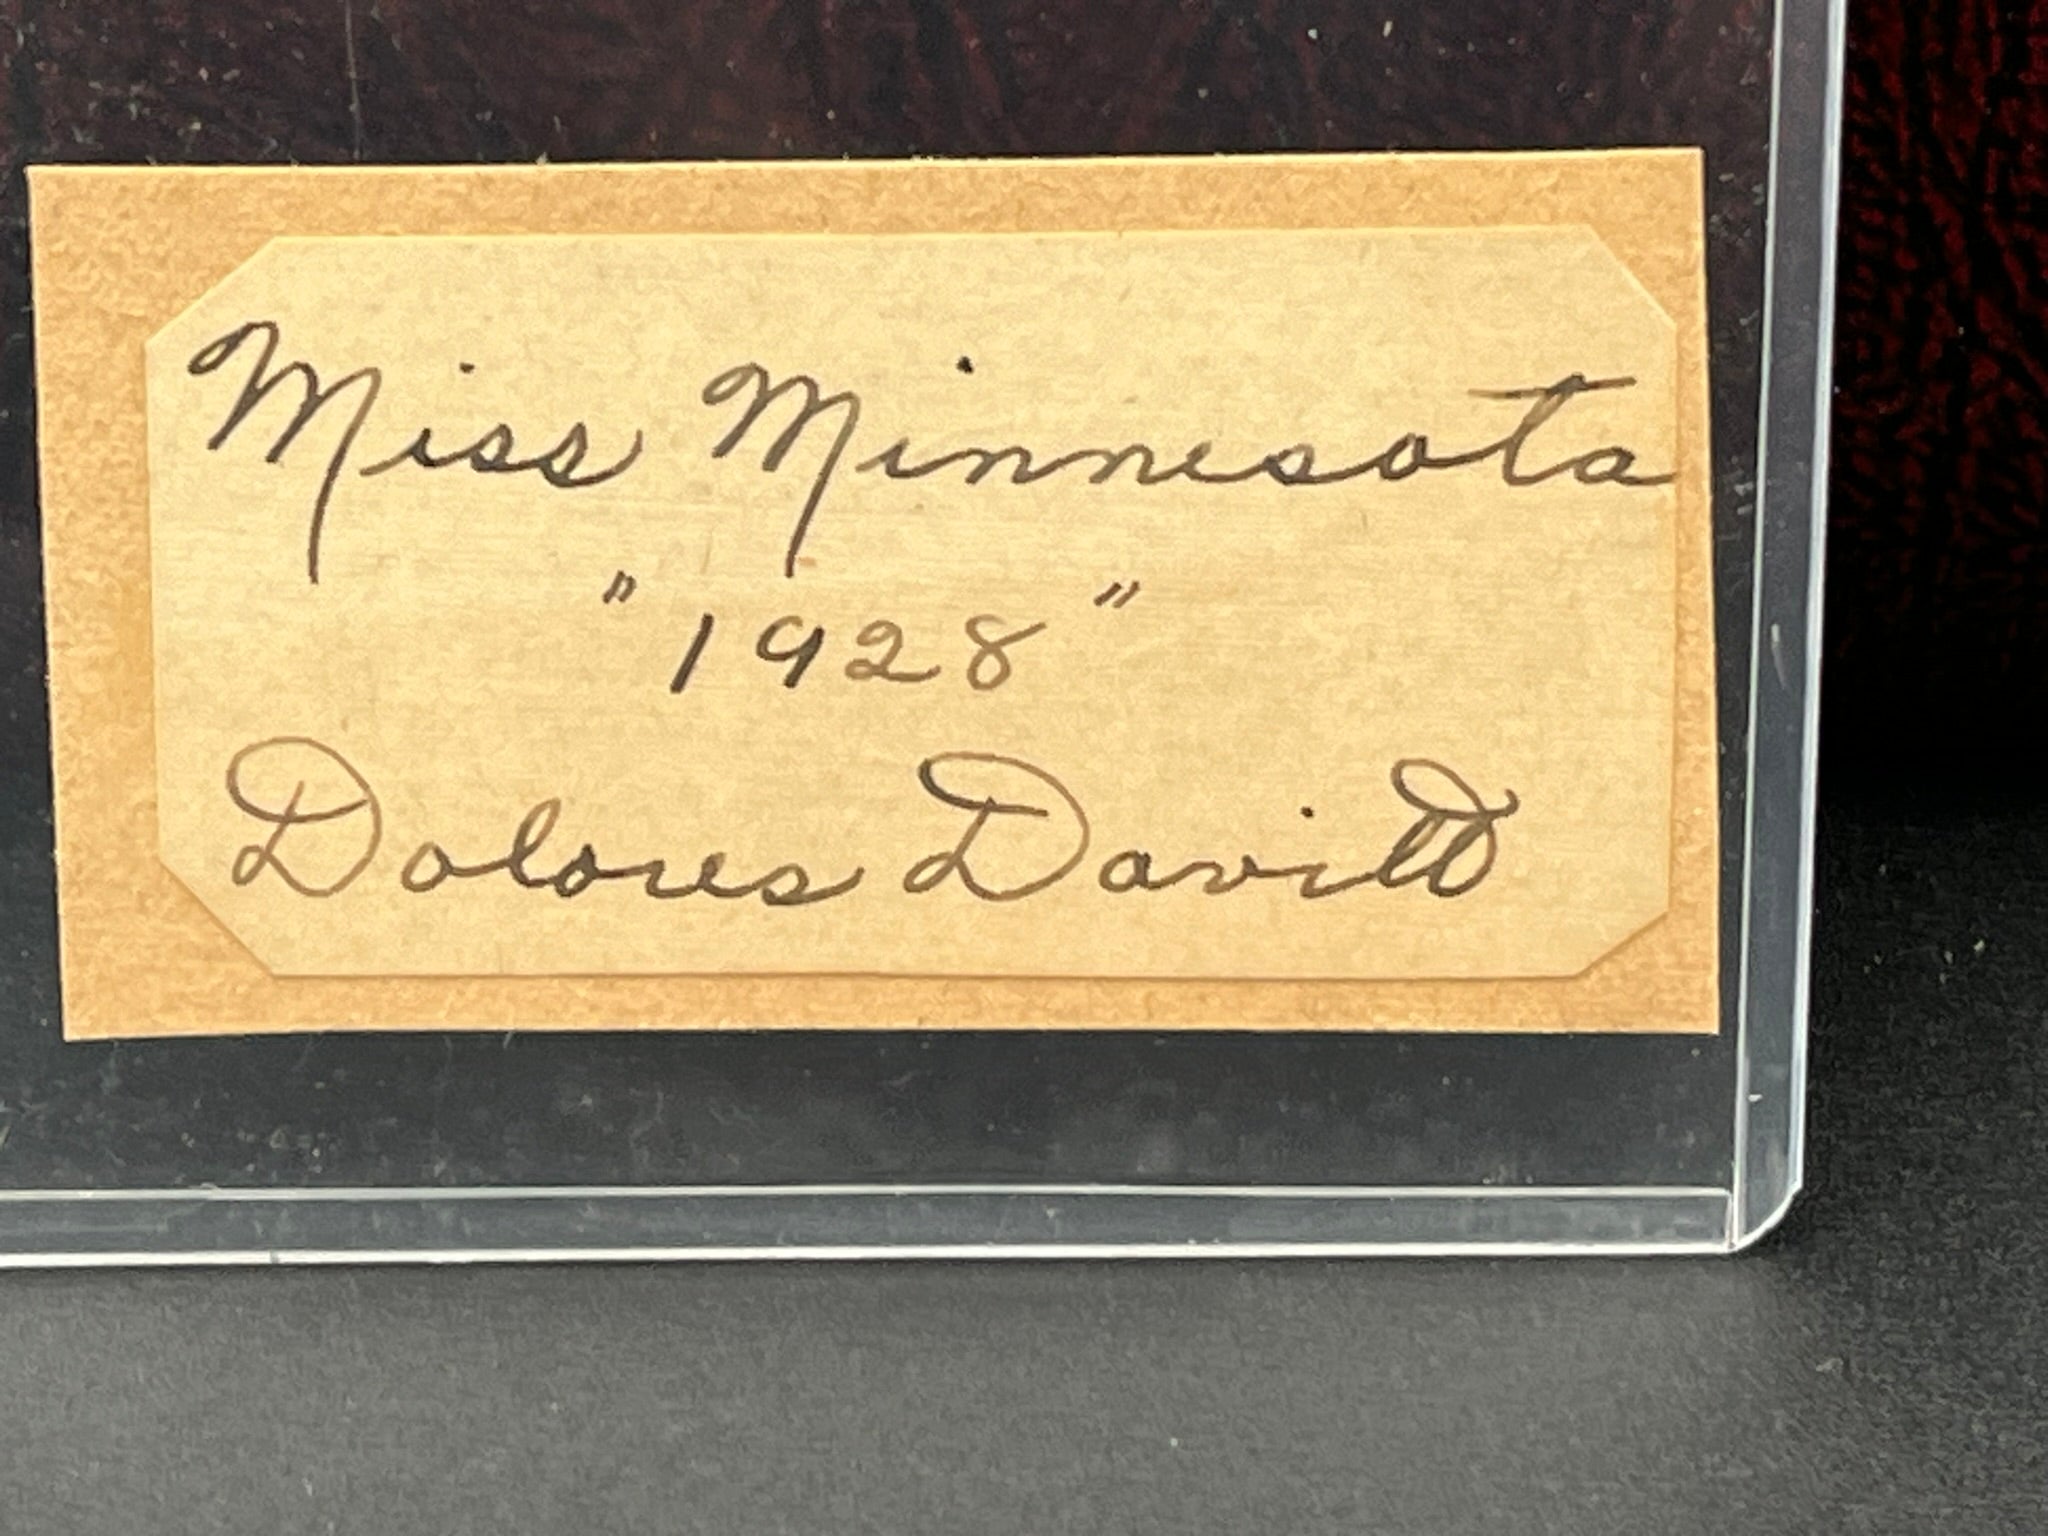 Miss Minnesota
"1928"
Dolores Davitt